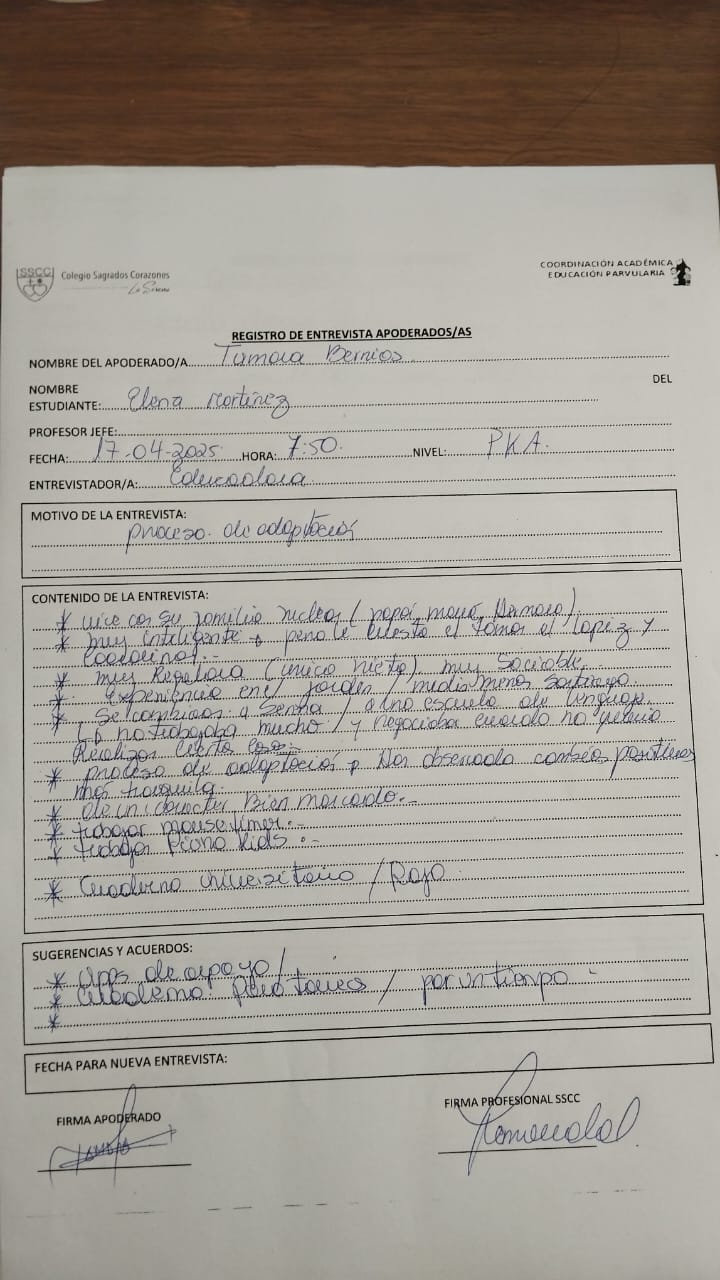 SSCC
Colegio Sagrados Corazones
La Serena
COORDINACIÓN ACADÉMICA
EDUCACIÓN PARVULARIA
REGISTRO DE ENTREVISTA APODERADOS/AS
NOMBRE DEL APODERADO/A Tamara Berrios
NOMBRE DEL
ESTUDIANTE: Elena Martinez
PROFESOR JEFE:
FECHA: 17-04-2025 HORA: 7:50. NIVEL: PKA.
ENTREVISTADOR/A: Educadora
MOTIVO DE LA ENTREVISTA:
proceso de adaptación
CONTENIDO DE LA ENTREVISTA:
* vive con su familia nuclear (papá, mamá, Hermana)
* muy inteligente → pero le cuesta el tomar el lapiz y
* muy Regalona (única nieta), muy sociable.
* Experiencia en / jardin / medio menor Santiago.
* Se cambiaron a Serena / a una escuela de lenguaje.
no trabajaba mucho / y negociaba cuando no quería
Realizar cierta
* proceso de adaptación → Han observado cambios positivos
más tranquila.
* de un caracter Bien marcado.-
* trabajar
* trabajar Kids.-
* Cuaderno universitario / Rojo
SUGERENCIAS Y ACUERDOS:
* de apoyo /
* Cuaderno para tareas / por un tiempo -
*
FECHA PARA NUEVA ENTREVISTA:
FIRMA APODERADO
FIRMA PROFESIONAL SSCC